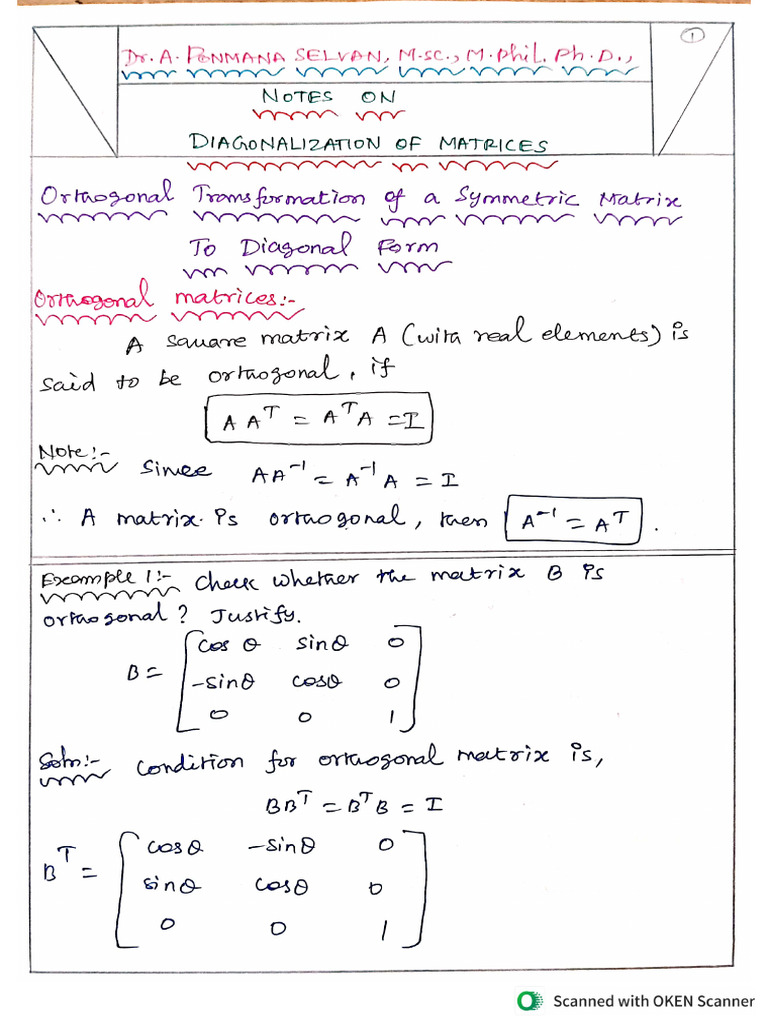 1
Dr. A. PONMANA SELVAN, M.Sc., M.Phil. Ph.D.,
NOTES ON
DIAGONALIZATION OF MATRICES
Orthogonal Transformation of a Symmetric Matrix
To Diagonal Form
Orthogonal matrices:-
A square matrix A (with real elements) is
said to be orthogonal, if
A Aᵀ = Aᵀ A = I
Note:- Since AA⁻¹ = A⁻¹ A = I
∴ A matrix is orthogonal, then A⁻¹ = Aᵀ .
Example 1:- Check whether the matrix B is
orthogonal? Justify.
B = [ cos θ sin θ 0
-sin θ cos θ 0
0 0 1 ]
Soln:- Condition for orthogonal matrix is,
BBᵀ = BᵀB = I
Bᵀ = [ cos θ -sin θ 0
sin θ cos θ 0
0 0 1 ]
Scanned with OKEN Scanner